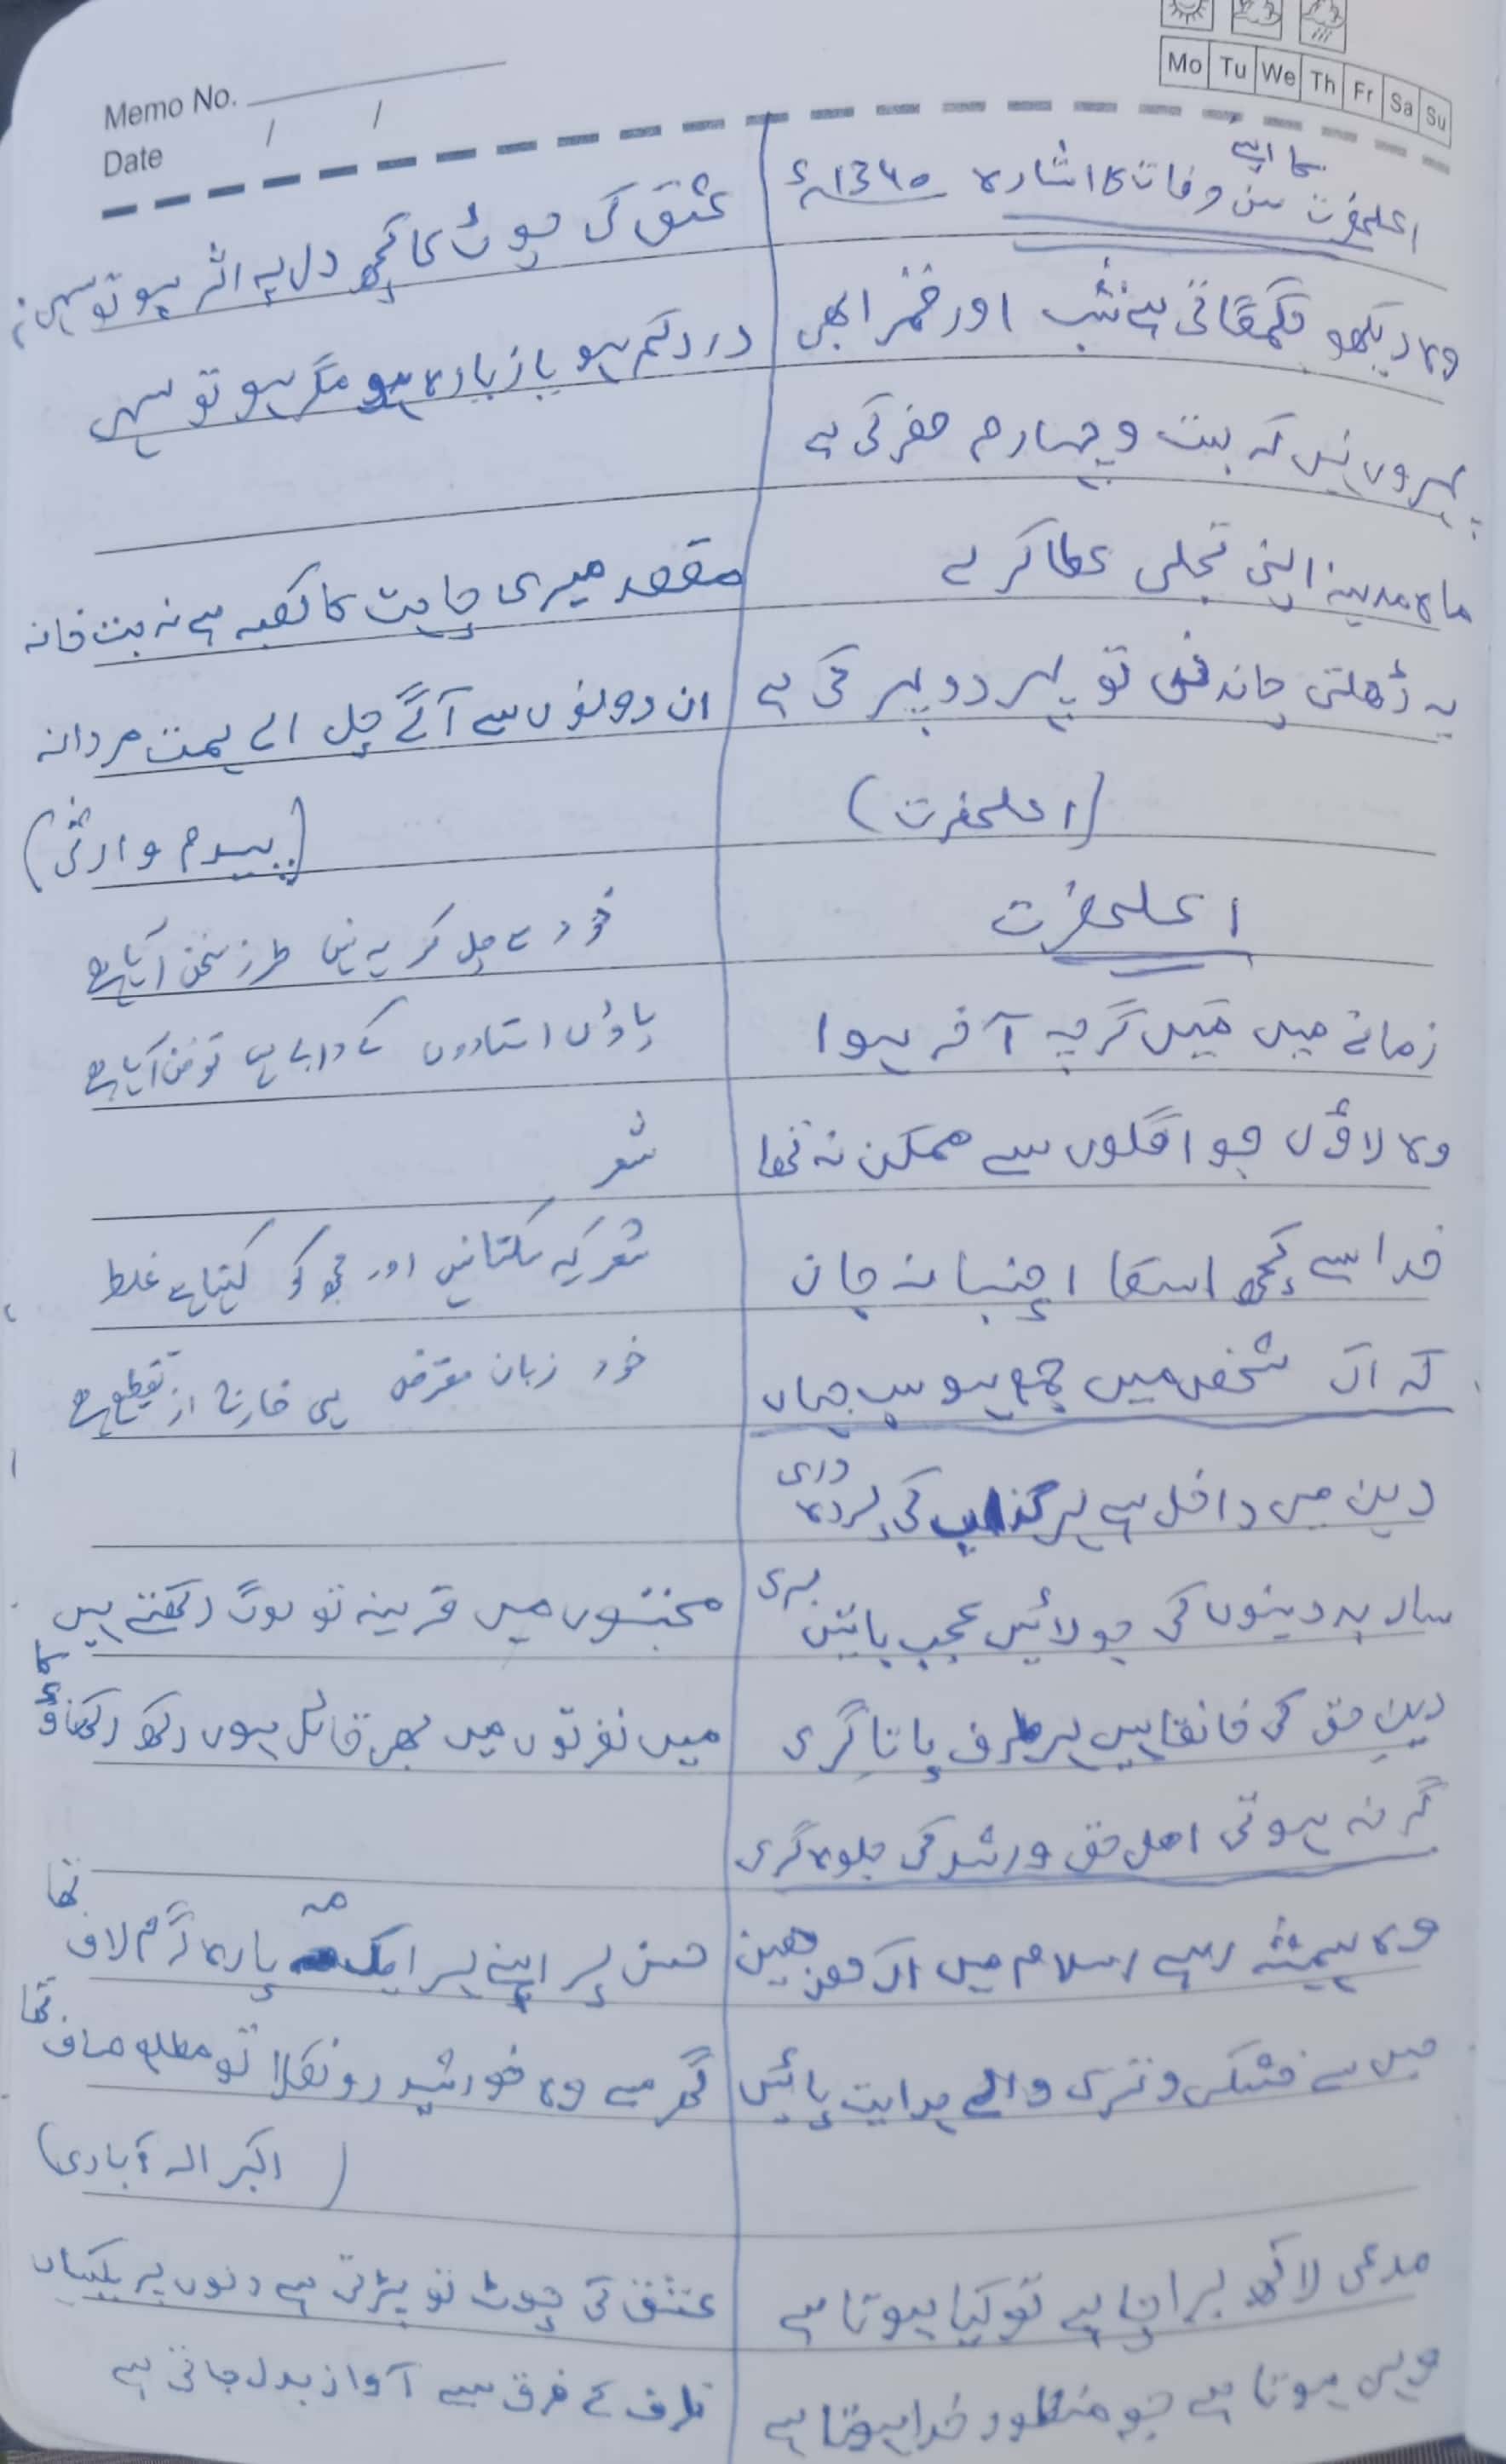 Mo Tu We Th Fr Sa Su
Memo No.
Date / /
کا اپنے
اعلحضرت سن وفات کا اشارہ 1340ء
وہ دیکھو جگمگاتی ہے شب اور قمر ابھی
پہروں نہیں کہ بست و چہارم صفر کی ہے
ماہ مدینہ اپنی تجلی عطا کرے
یہ ڈھلتی چاندنی تو پہر دو پہر کی ہے
(اعلحضرت)
اعلحضرت
زمانے میں میں گرچہ آخر ہوا
وہ لاؤں جو اگلوں سے ممکن نہ تھا
خدا سے کچھ اسکا اچنبا نہ جان
کہ اک شخص میں جمع ہو سب جہاں
دین میں داخل ہے ہر کذاب کی پردہ دری
سارے بد دینوں کی جو لائیں عجب باتیں بری
دینِ حق کی خانقاہیں ہر طرف پاتا گری
گر نہ ہوتی اہل حق و رشد کی جلوہ گری
وہ ہمیشہ رہے اسلام میں اک
جس سے خشکی و تری والے ہدایت پائیں
مدعی لاکھ برا چاہے تو کیا ہوتا ہے
وہی ہوتا ہے جو منظور خدا ہوتا ہے
عشق کی چوٹ کا کچھ دل پہ اثر ہو تو سہی
درد کم ہو یا زیادہ ہو مگر ہو تو سہی
مقصد میری چاہت کا کعبہ ہے نہ بت خانہ
ان دونوں سے آگے چل اے ہمت مردانہ
(بیدم وارثی)
خود سے چل کر یہ نہیں طرز سخن آیا ہے
پاؤں استادوں کے دابے ہیں تو فن آیا ہے
شعر
شعر کہہ سکتا نہیں اور مجھ کو کہتا ہے غلط
خود زبان معترض ہی خارج از تقطیع ہے
محبتوں میں قرینہ تو لوگ رکھتے ہیں
میں نفرتوں میں بھی قائل ہوں رکھ رکھاؤ کا
حسن پر اپنے ہر ایک مہ پارہ گرم لاف تھا
گھر سے وہ خورشید رو نکلا تو مطلع صاف تھا
(اکبر الہ آبادی)
عشق کی چوٹ تو پڑتی ہے دلوں پر یکساں
ظرف کے فرق سے آواز بدل جاتی ہے